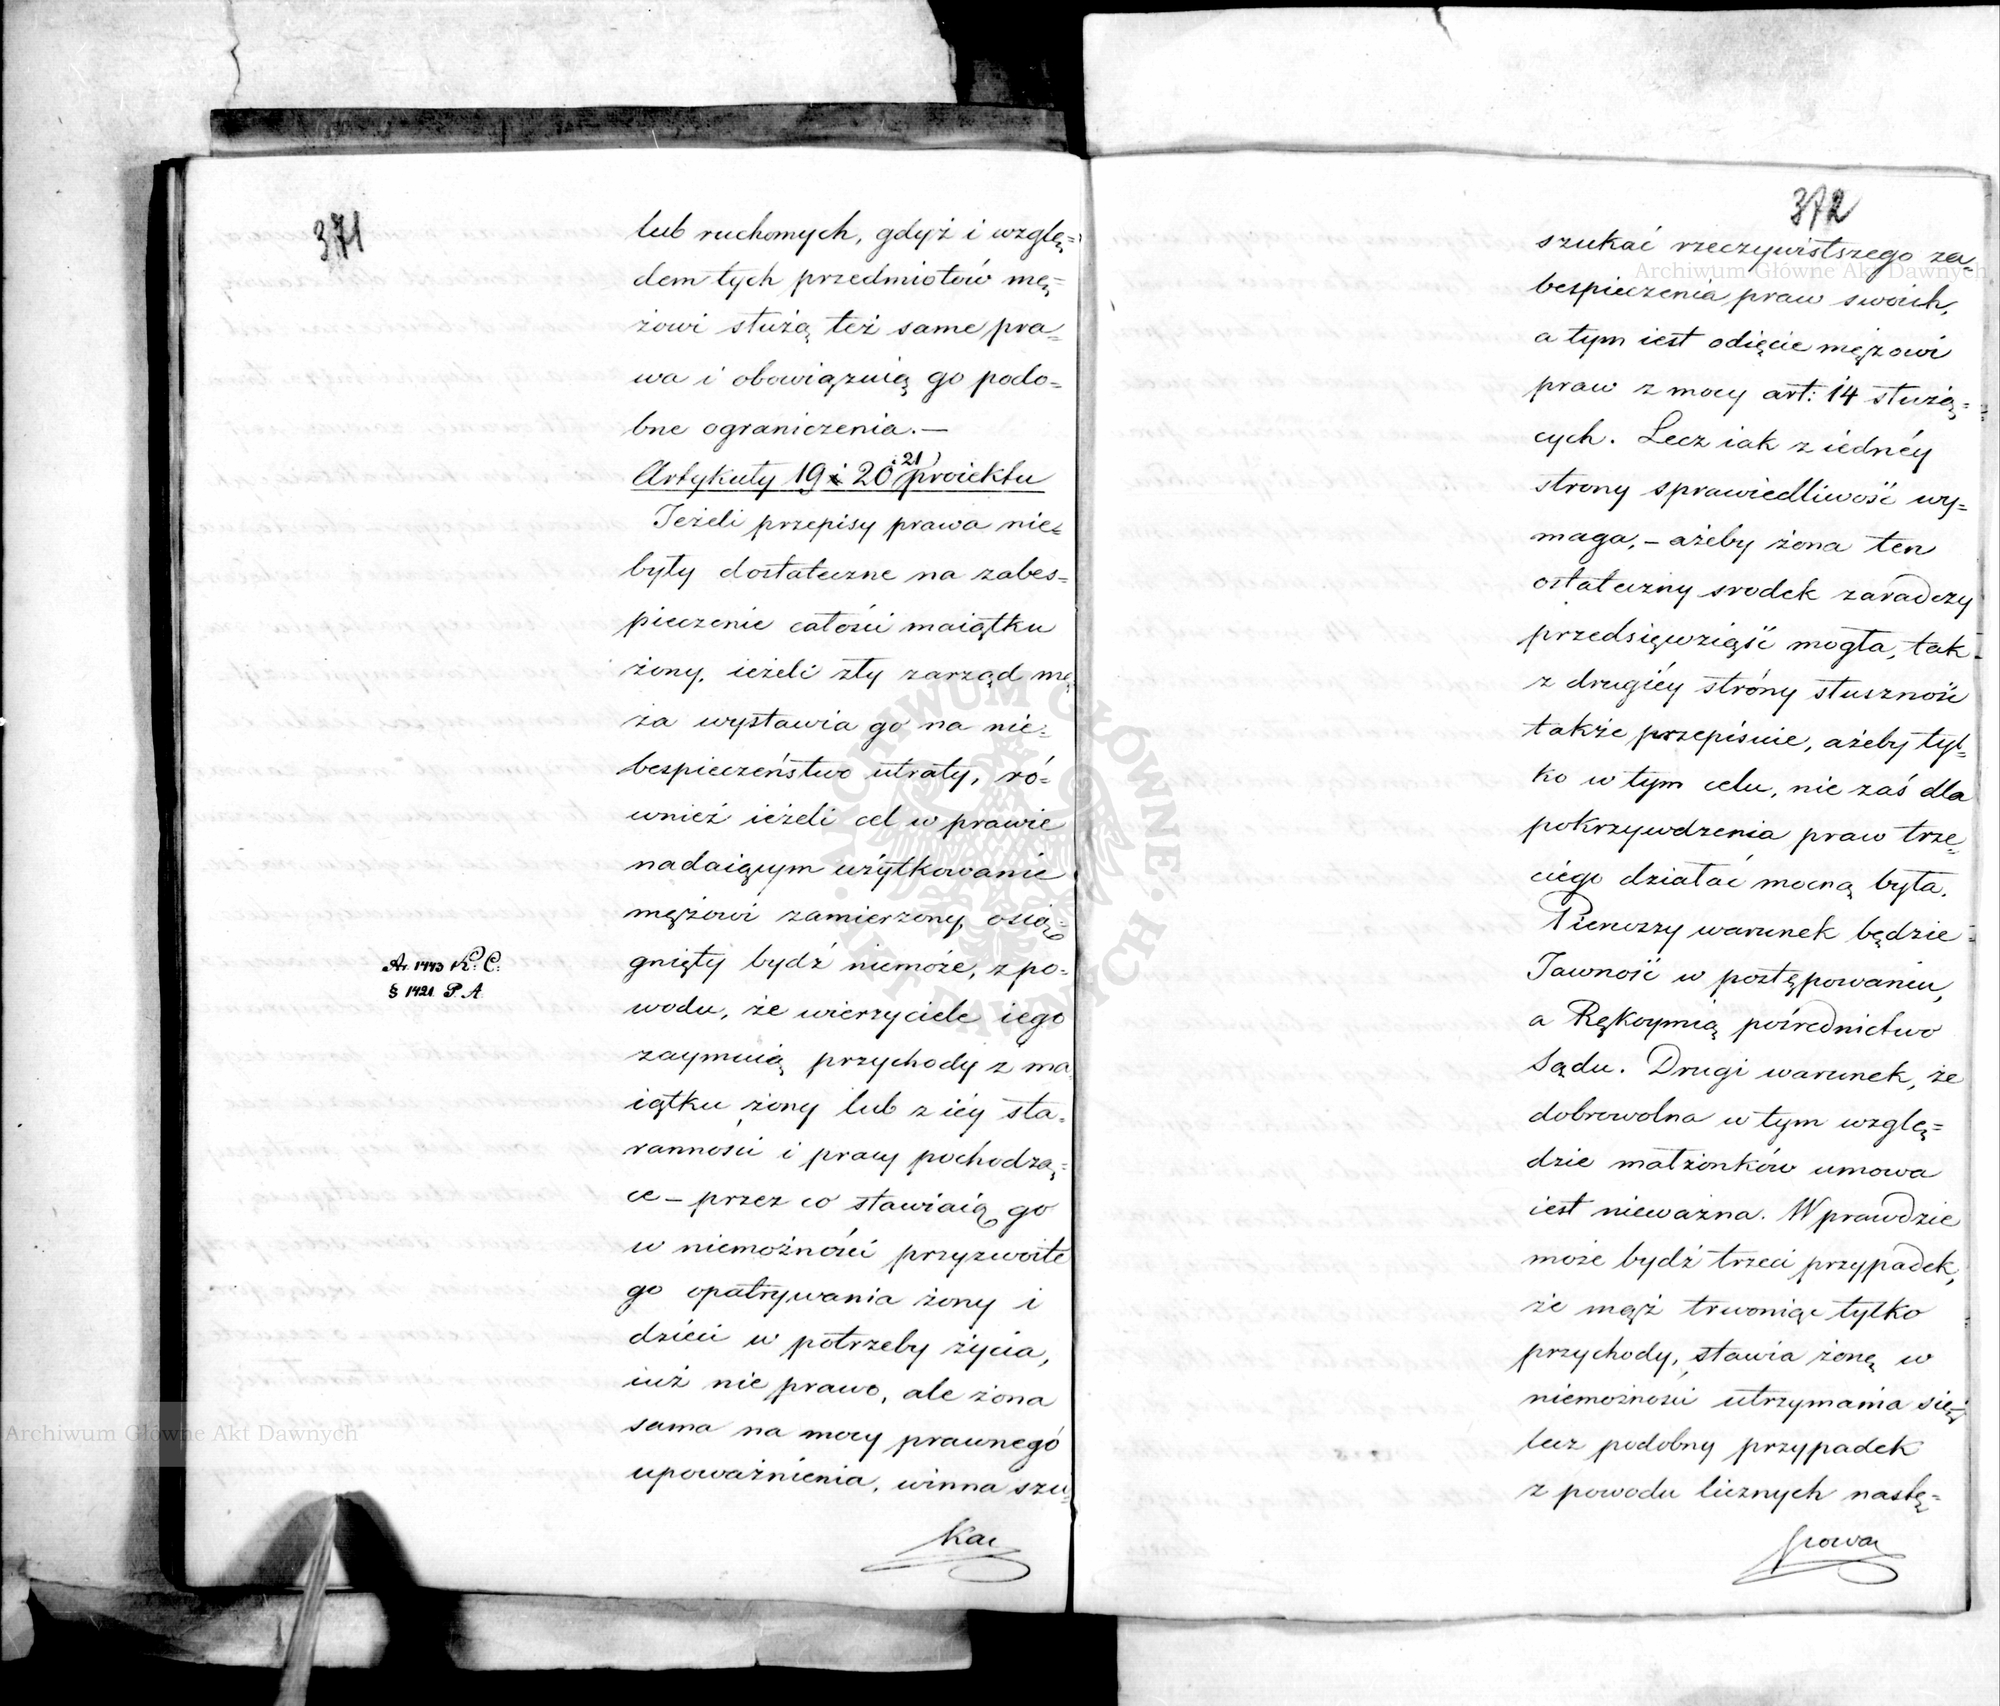 371
lub ruchomych, gdyż i wzglę=
dem tych przedmiotów mę=
żowi służą też same pra=
wa i obowiązuią go podo=
bne ograniczenia.—
Artykuły 19 i 20 i 21) proiektu
Jeżeli przepisy prawa nie=
były dostateczne na zabes=
pieczenie całości maiątku
żony, ieżeli zły zarząd mę
ża wystawia go na nie=
bespieczeństwo utraty, ró=
wnież ieżeli cel w prawie
nadaiącym użytkowanie
mężowi zamierzony, osią=
gnięty bydź niemoże, z po=
wodu, że wierzyciele iego
zaymuią przychody z ma
iątku żony lub z iéy sta=
ranności i pracy pochodzą=
ce – przez co stawiaią go
w niemożności przyzwoite
go opatrywania żony i
dzieci w potrzeby życia,
iuż nie prawo, ale żona
sama na mocy prawnego
upoważnienia, winna szu=
kać
Ar. 1443 K: C:
§ 1421 P. A
372
szukać rzeczywistszego za=
bespieczenia praw swoich,
a tym iest odięcie mężowi
praw z mocy art: 14 służą=
cych. Lecz iak z iednéy
strony sprawiedliwość wy=
maga, – ażeby żona ten
ostateczny srodek zaradczy
przedsięwziąść mogła, tak
z drugiéy stróny słuszność
także przepisuie, ażeby tyl=
ko w tym celu, nie zaś dla
pokrzywdzenia praw trze=
ciego działać mocną była.
Pierwszy warunek będzie
Jawność w postępowaniu,
a Rękoymią pośrednictwo
Sądu. Drugi warunek, że
dobrowolna w tym wzglę=
dzie małżonków umowa
iest nieważna. Wprawdzie
może bydź trzeci przypadek,
że mąż trwoniąc tylko
przychody, stawia żonę w
niemożności utrzymania się,
lecz podobny przypadek
z powodu licznych nastę=
powa
Archiwum Główne Akt Dawnych
Archiwum Główne Akt Dawnych
ARCHIWUM GŁÓWNE AKT DAWNYCH